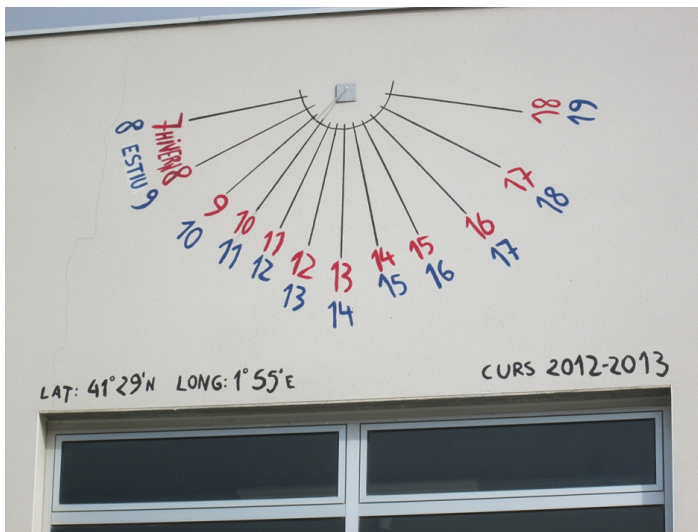 7 HIVERN 8 9 10 11 12 13 14 15 16 17 18
8 ESTIU 9 10 11 12 13 14 15 16 17 18 19
LAT: 41°29'N LONG: 1°55'E
CURS 2012-2013